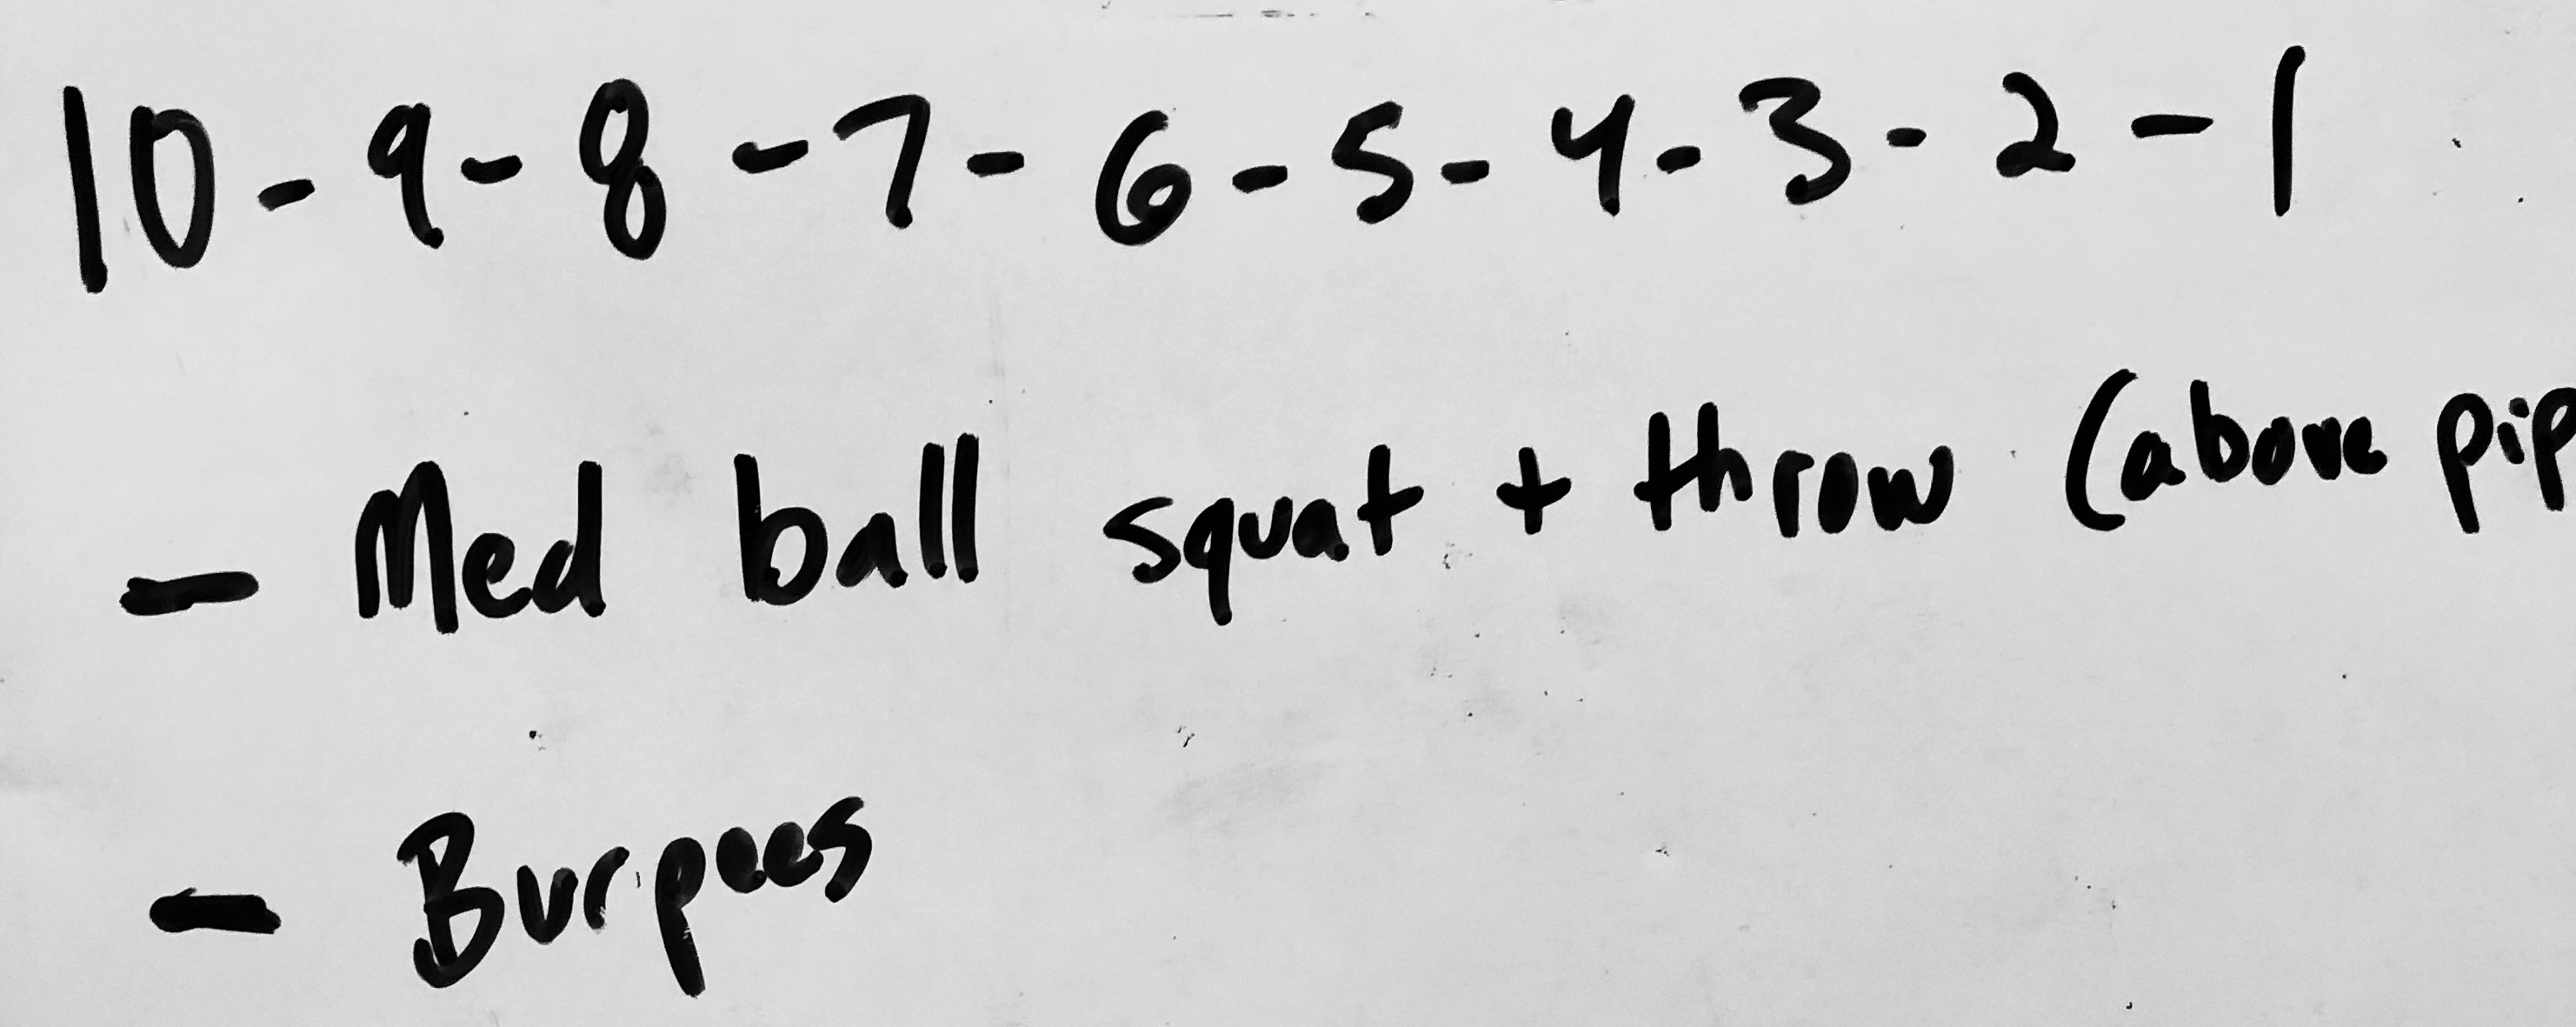 10 - 9 - 8 - 7 - 6 - 5 - 4 - 3 - 2 - 1
- Med ball squat + throw (above pip
- Burpees